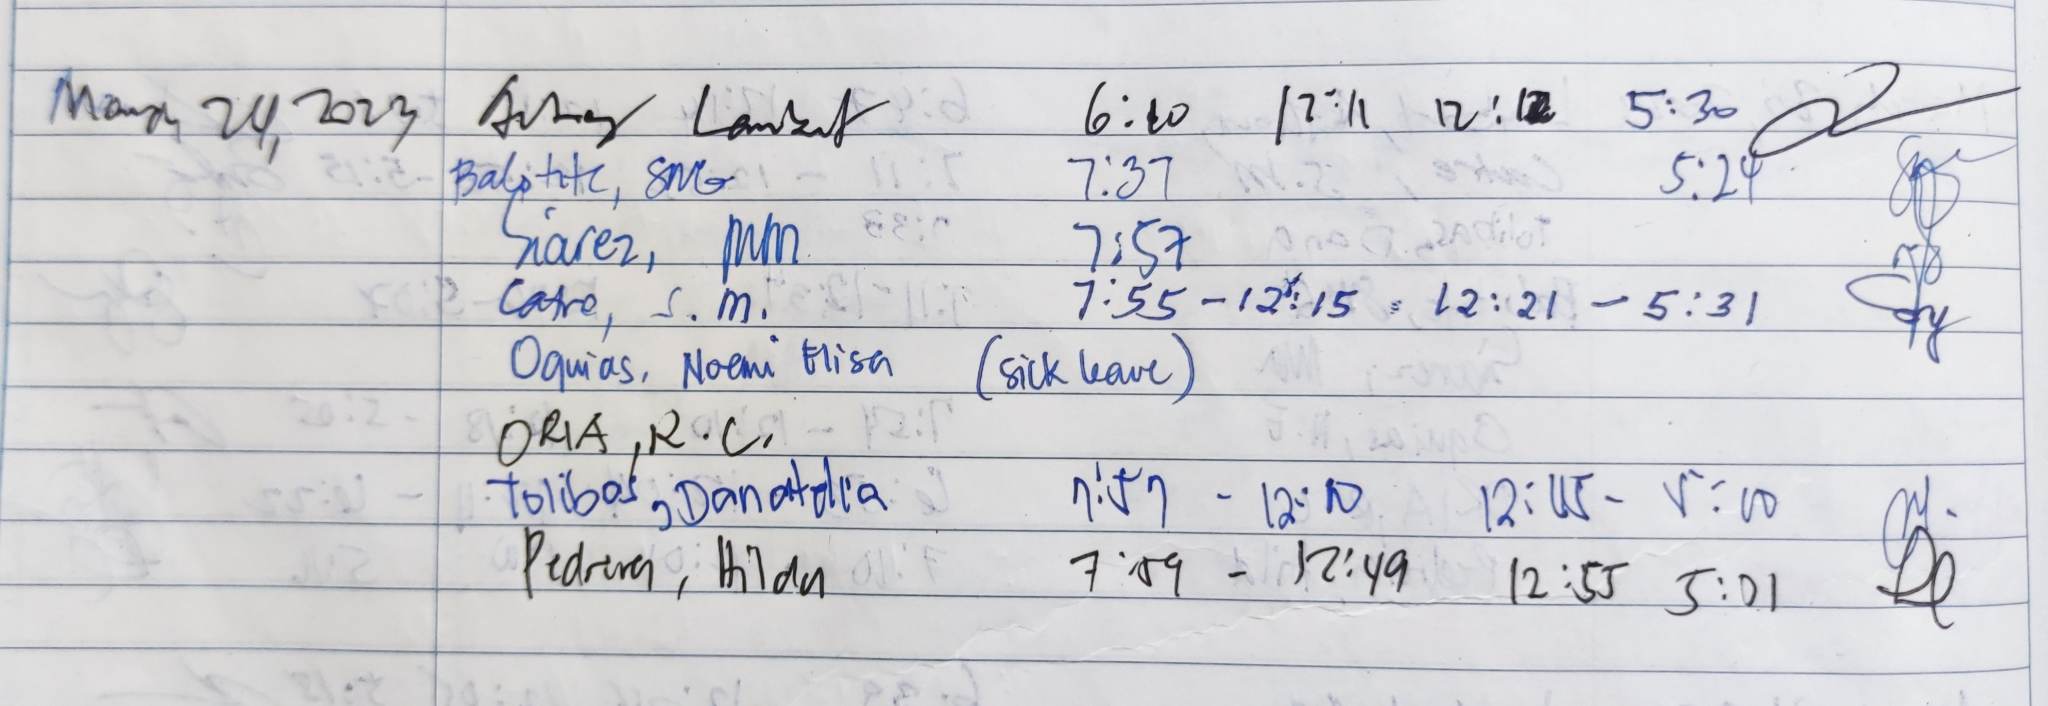 March 24, 2023 Lambert 6:40 12:11 12:12 5:30
Balotite, SMG 7:37 5:24
Siarez, MM 7:57
Catre, S. M. 7:55 - 12:15 12:21 - 5:31
Oquias, Noemi Elisa (sick leave)
ORIA, R.C.
Tolibas, Danatelia 7:57 - 12:10 12:45 - 5:00
Pedrera, Hilda 7:59 - 12:49 12:55 5:01